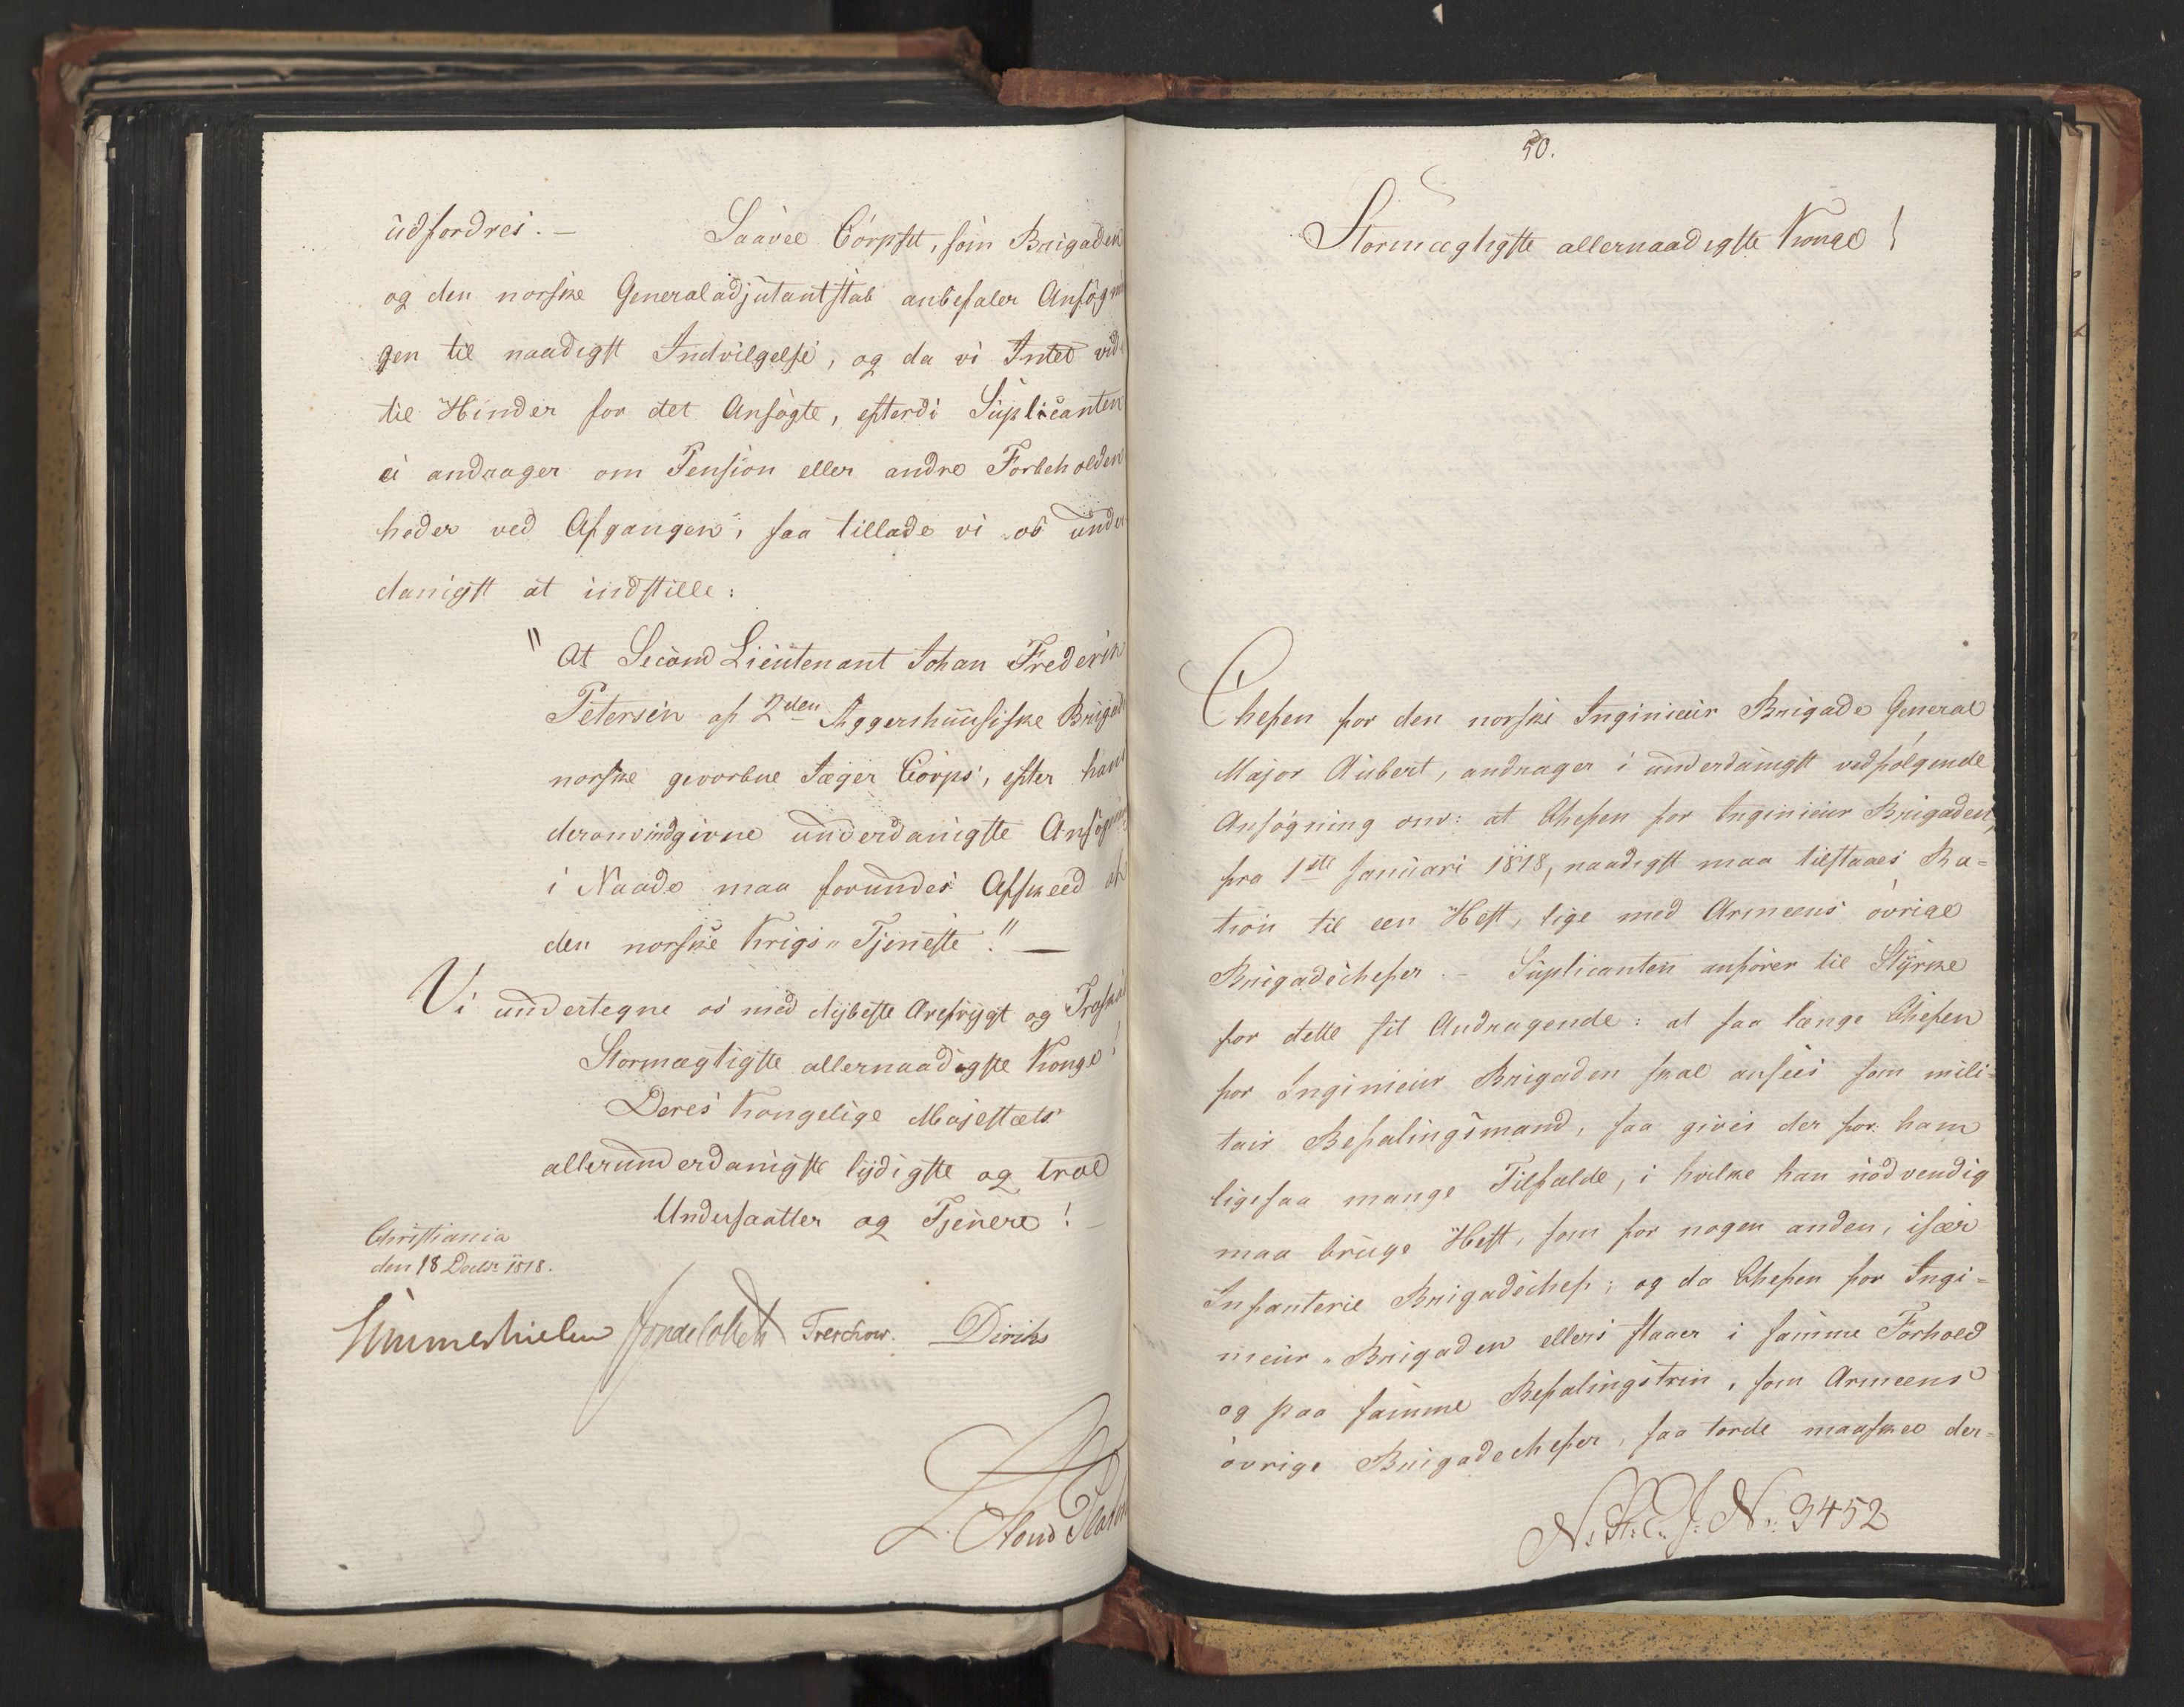 udfordres. — Saavel Corpset, som Brigaden
og den norske Generaladjutantstab anbefaler Ansøgnin
gen til naadigst Indvilgelse, og da vi Intet vide
til Hinder for det Ansøgte, efterdi Suplicanten
ei andrager om Pension eller andre Forbeholden
heder ved Afgangen, saa tillade vi os under
danigst at indstille:
"At Second Lieutenant Johan Frederik
Petersen af 2den Aggershuusiske Brigade
norske gevorbne Jæger Corps, efter hans
derom indgivne underdanigste Ansøgning
i Naade maa forundes Afskeed af
den norske Krigs-Tjeneste." —
Vi undertegne os med dybeste Ærefrygt og Troskab
Stormægtigste allernaadigste Konge!
Deres Kongelige Majestæts
allerunderdanigste lydigste og troe
Undersaatter og Tjenere! —
Christiania
den 18 Decbr 1818.
Hmmerhielm Jonas Collett Treschow. Diriks
50.
Stormægtigste allernaadigste Konge!
Chefen for den norske Ingenieur Brigade General
Major Aubert, andrager i underdanigst vedfølgende
Ansøgning om: at Chefen for Ingenieur Brigaden,
fra 1ste Januari 1818, naadigst maa tilstaaes Ra=
tion til een Hest, lige med Armeens øvrige
Brigadechefer. — Suplicanten anfører til Styrke
for dette sit Andragende: at saa længe Chefen
for Ingenieur Brigaden skal ansees som mili=
tair Befalingsmand, saa gives der for ham
ligesaa mange Tilfælde, i hvilke han nødvendig
maa bruge Hest, som for nogen anden, især
Infanterie Brigadechef; og da Chefen for Inge=
nieur-Brigaden ellers staaer i samme Forhold
og paa samme Befalingstrin, som Armeens
øvrige Brigadechefer, saa torde maaskee der=
N. R. C. J. No. 3452